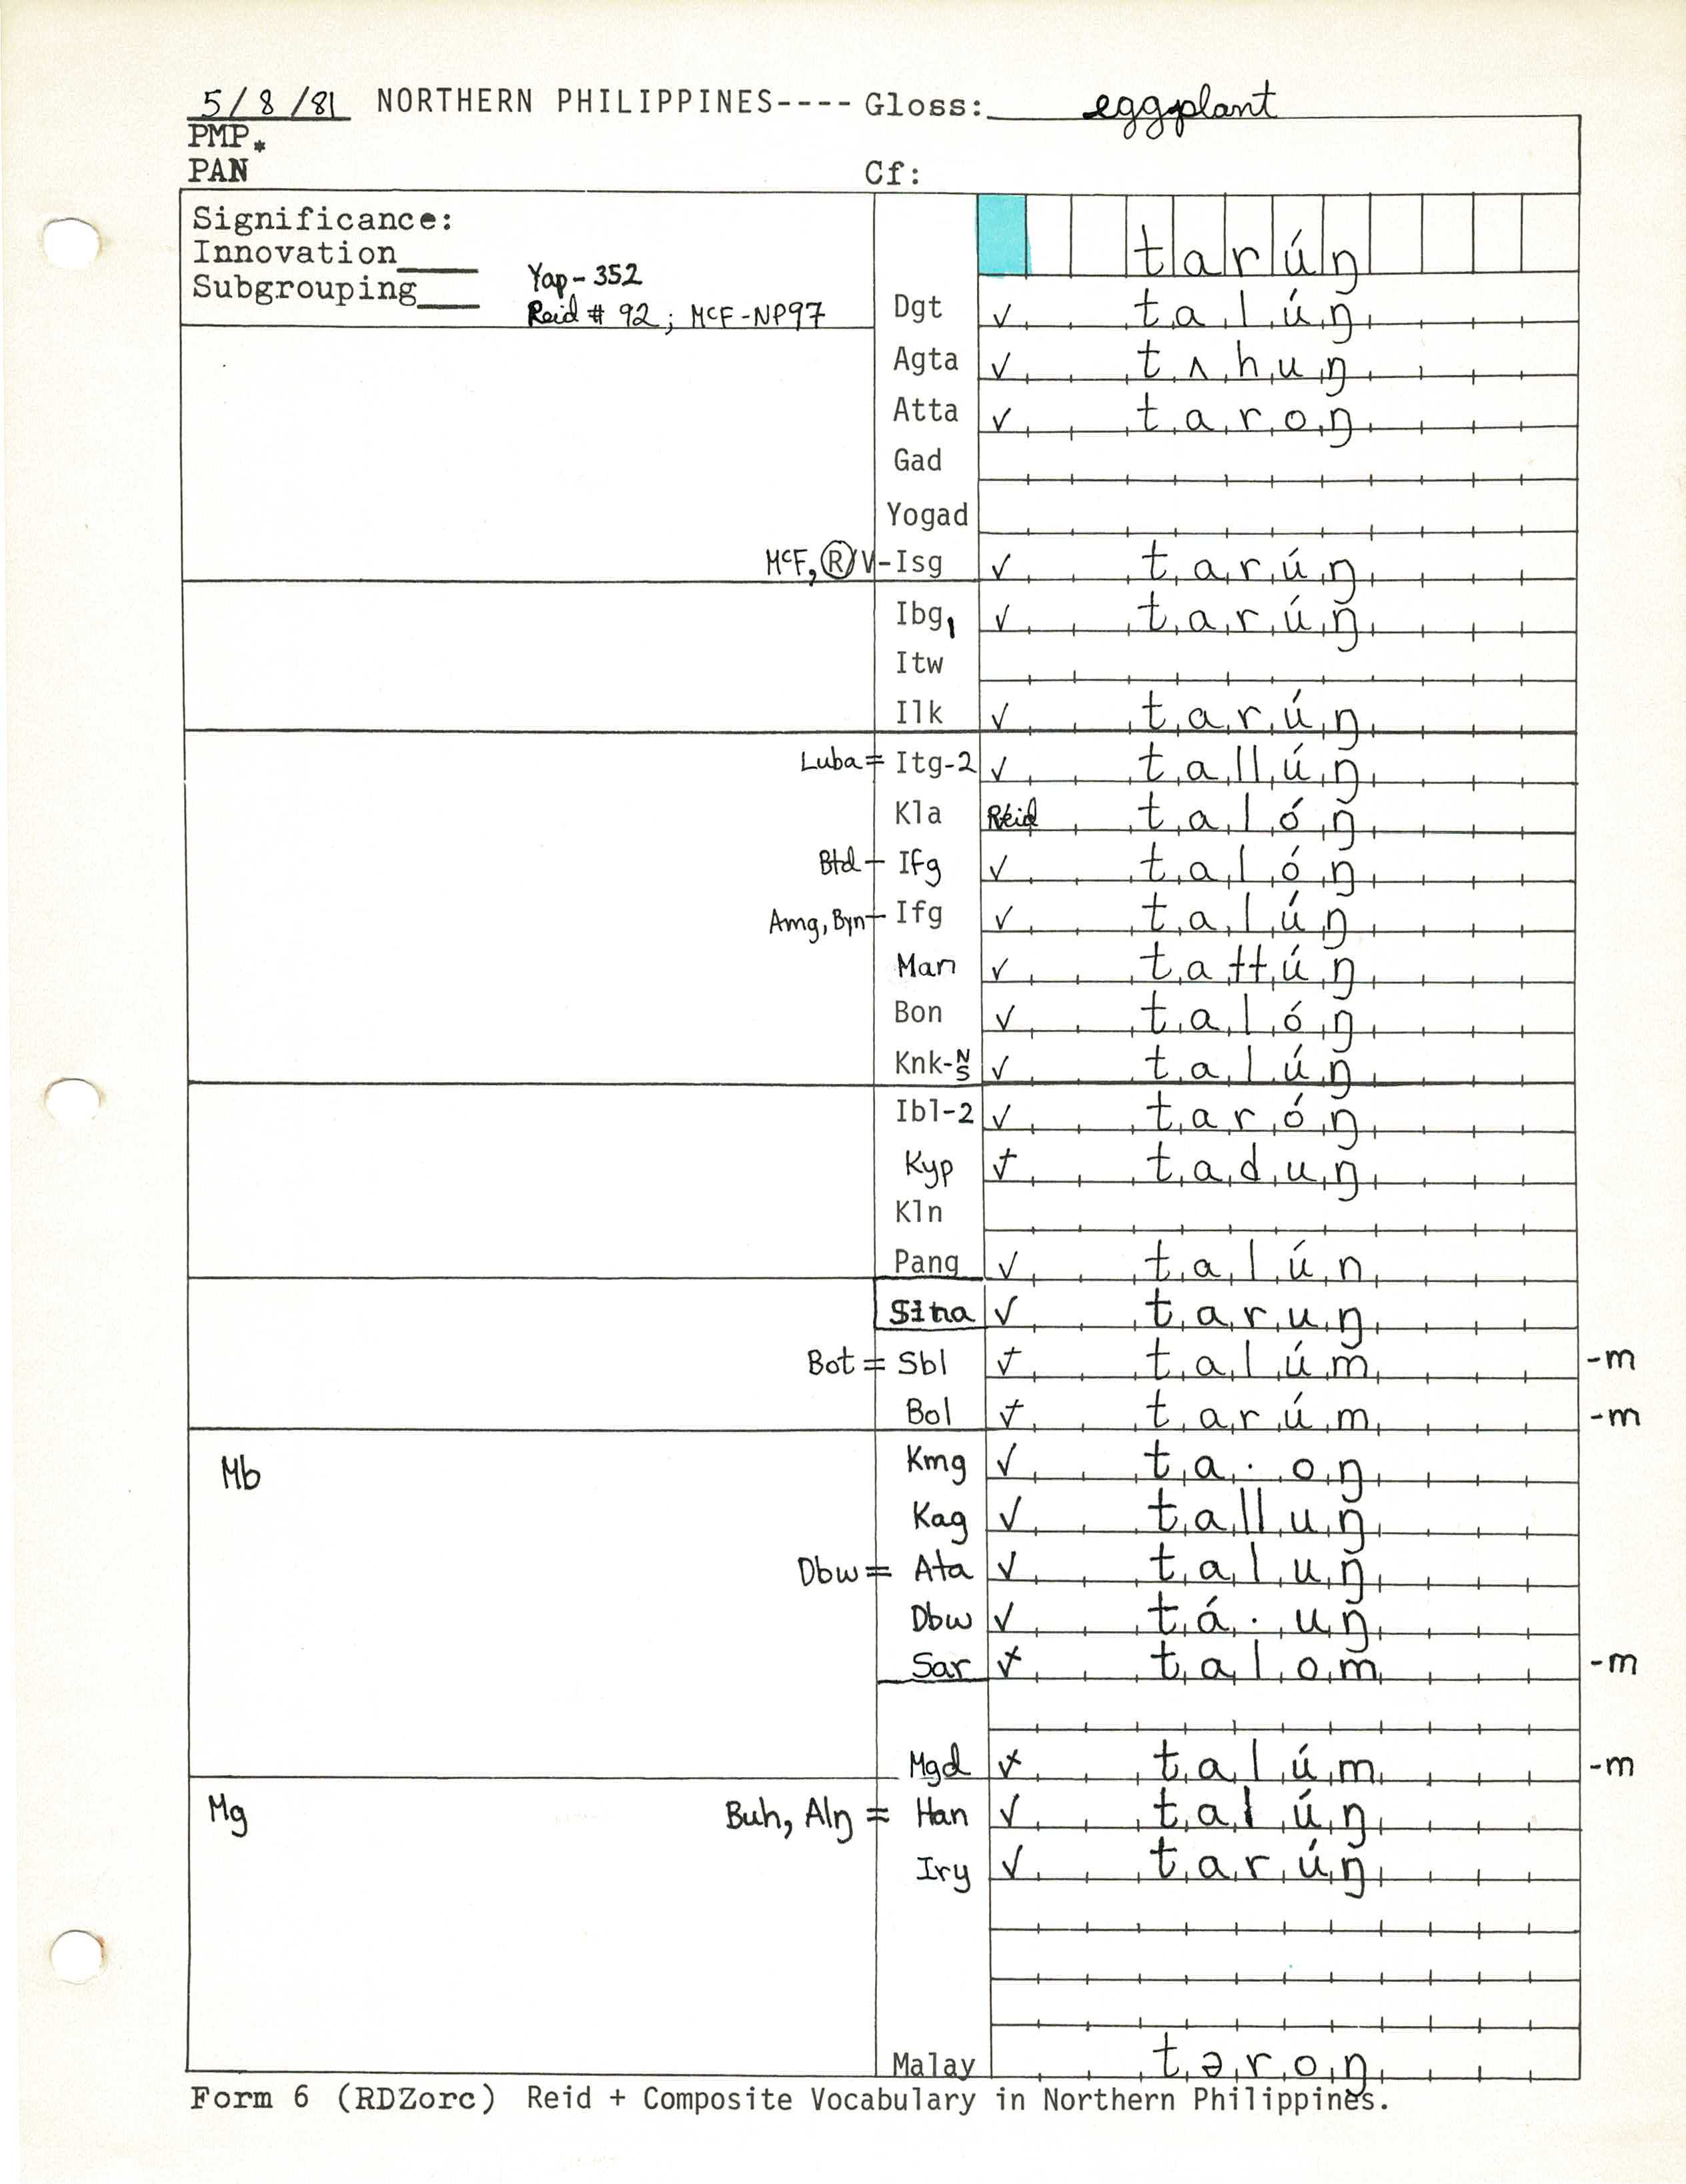 5/8/81 NORTHERN PHILIPPINES---- Gloss: eggplant
PMP *
PAN Cf:
Significance:
Innovation____
Subgrouping____
Yap-352
Reid # 92; McF-NP97
tarúŋ
Dgt ✓ talúŋ
Agta ✓ tʌhuŋ
Atta ✓ taroŋ
Gad
Yogad
McF, Ⓡ/V-Isg ✓ tarúŋ
Ibg1 ✓ tarúŋ
Itw
Ilk ✓ tarúŋ
Luba = Itg-2 ✓ tallúŋ
Kla Reid talóŋ
Btd - Ifg ✓ talóŋ
Amg, Byn - Ifg ✓ talúŋ
Man ✓ taɫɫúŋ
Bon ✓ talóŋ
Knk-N/S ✓ talúŋ
Ibl-2 ✓ taróŋ
Kyp ✓ taduŋ
Kln
Pang ✓ talún
Sina ✓ taruŋ
Bot = Sbl ✓ talúm -m
Bol ✓ tarúm -m
Mb
Kmg ✓ ta·oŋ
Kag ✓ talluŋ
Dbw = Ata ✓ taluŋ
Dbw ✓ tá·uŋ
Sar ✓ talom -m
Mgd ✓ talúm -m
Mg
Buh, Alŋ = Han ✓ talúŋ
Iry ✓ tarúŋ
Malay təroŋ
Form 6 (RDZorc) Reid + Composite Vocabulary in Northern Philippines.